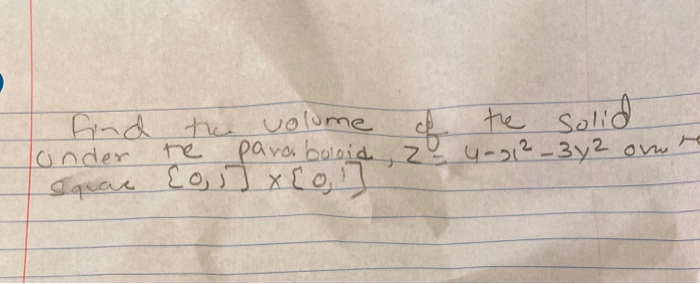 find the volume of the solid
under the paraboloid, z = 4-x² -3y² over
square [0,1] x [0,1]